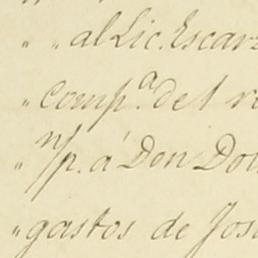 " " al Lic. Escar
" comp.ª del
" n/p. á Don Do
" gastos de Jos